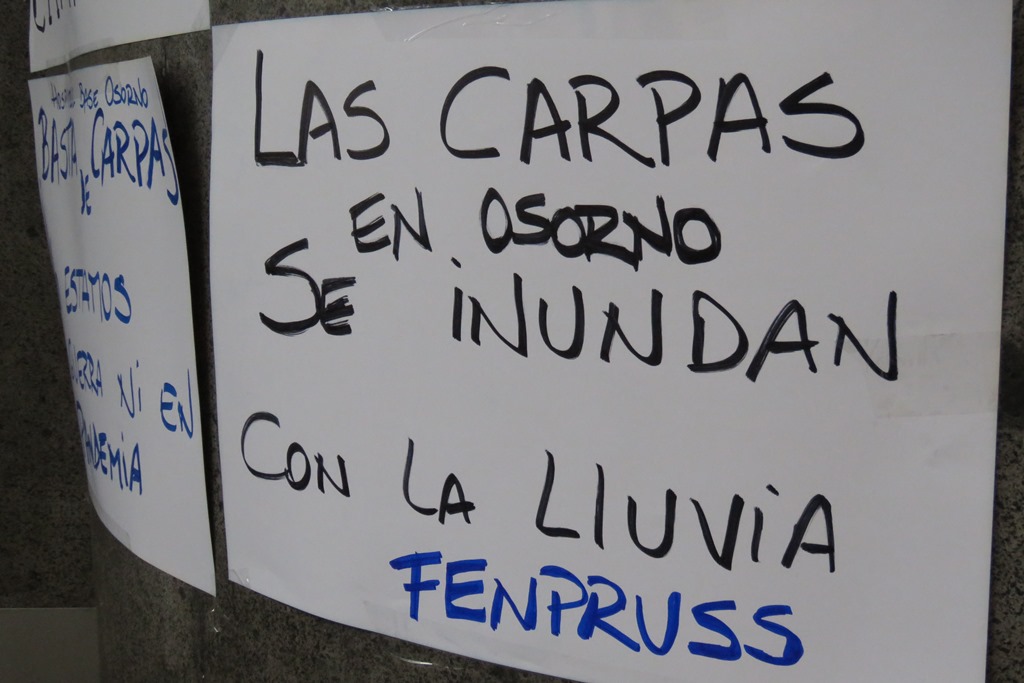 HOSPITAL BASE OSORNO
BASTA
DE
CARPAS
ESTAMOS
GUERRA NI EN
PANDEMIA
LAS CARPAS
EN OSORNO
SE INUNDAN
CON LA LLUVIA
FENPRUSS